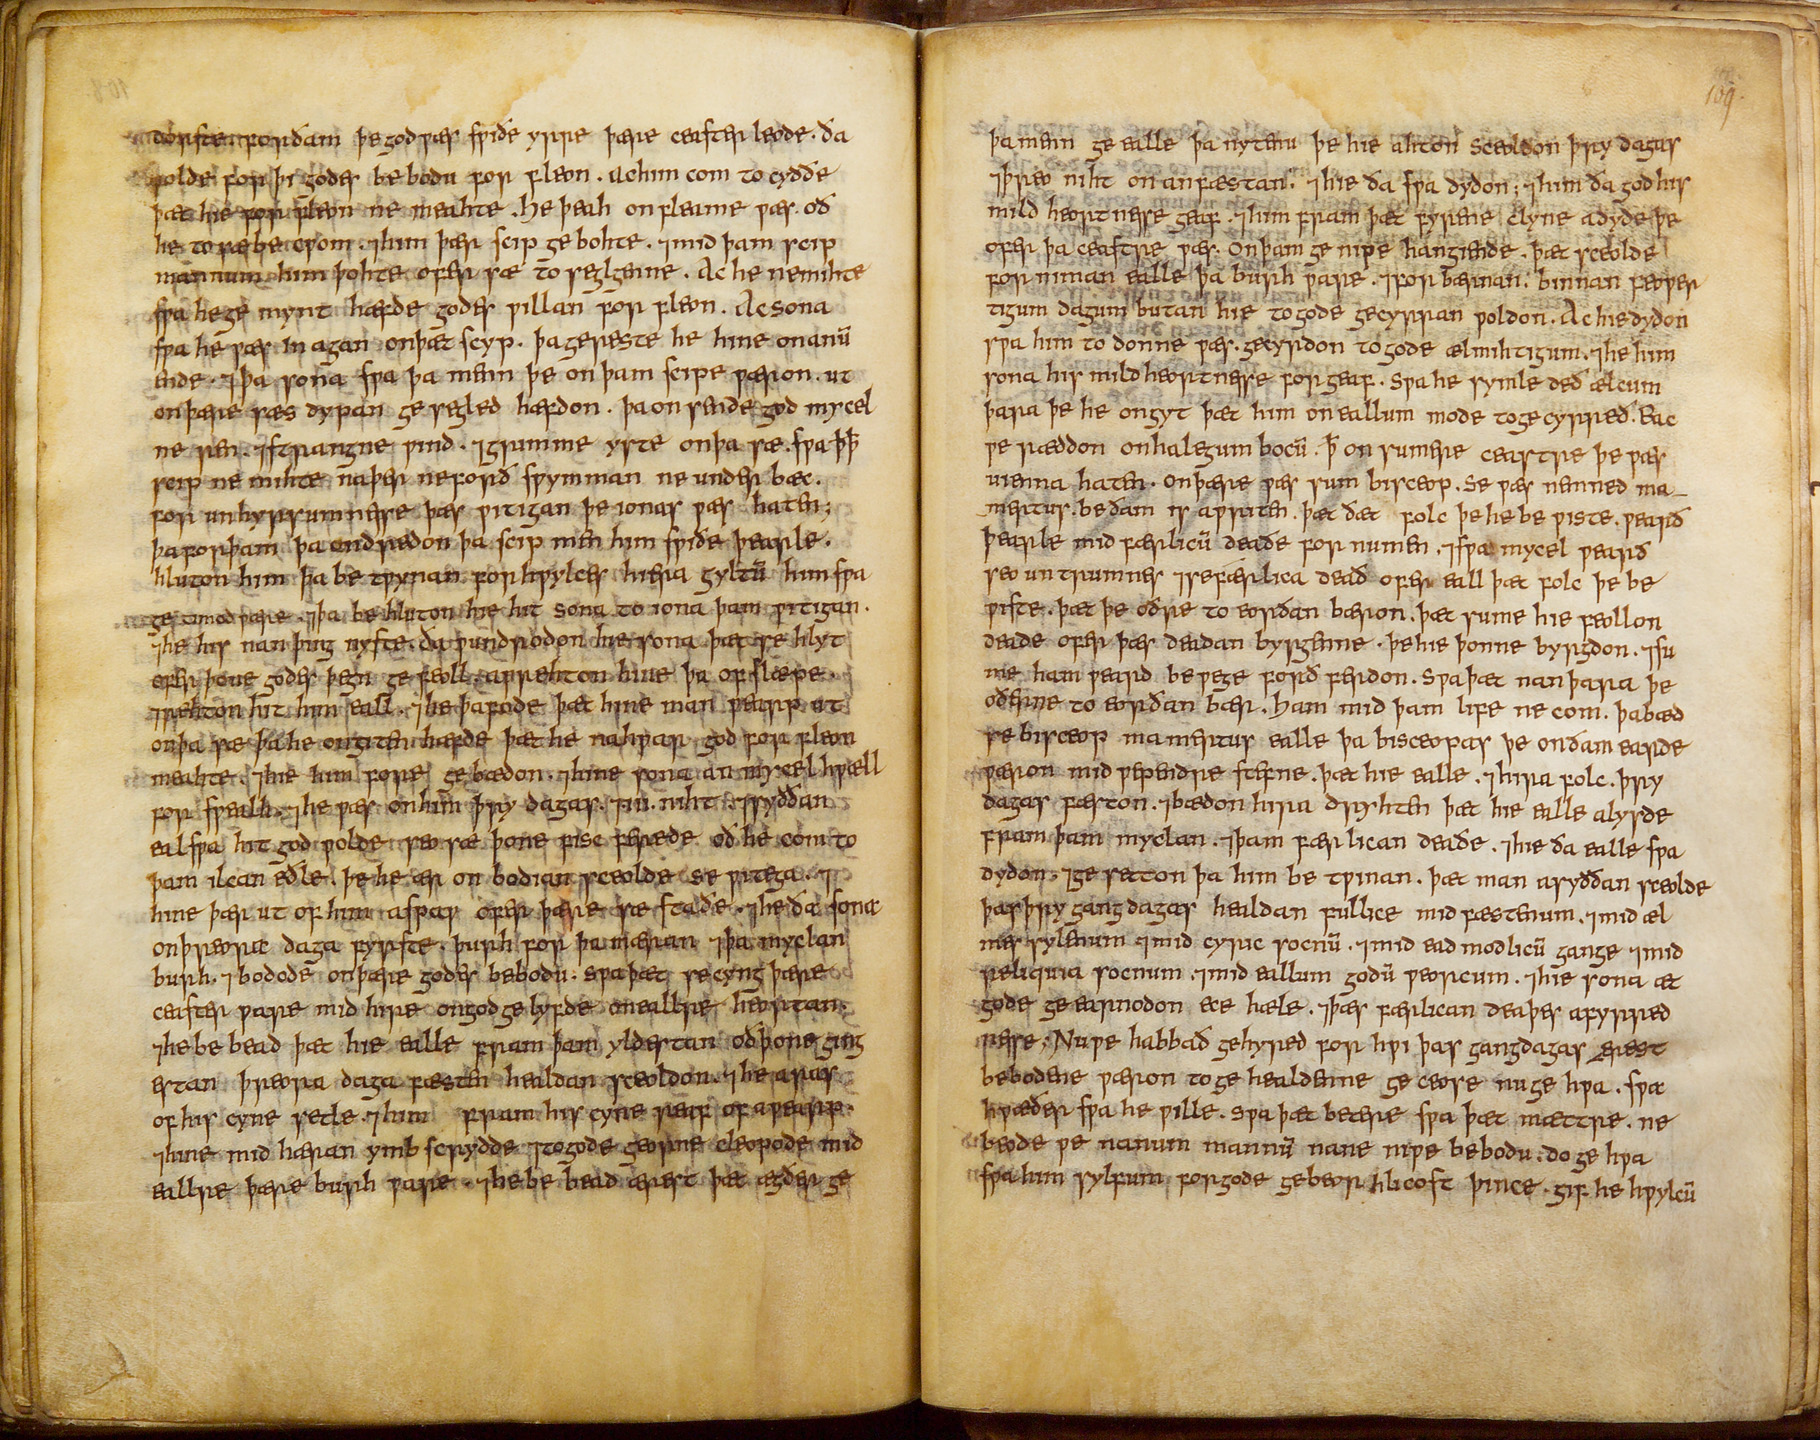 dorste. forðam þe god wæs swiðe yrre þære ceaster leode. ða
wolde for þi godes bebodu for fleon. Ac him com to cyððe
þæt hie for fleon ne meahte. He þeah on fleame wæs. oð
he to sæ becwom. ⁊ him þær scip gebohte. ⁊ mid þam scip
mannum him þohte ofer sæ to seglgenne. Ac he ne mihte
swa he ge mynt hæfde godes willan for fleon. Ac sona
swa he wæs in agan on þæt scyp. þa gereste he hine on anū
ende. ⁊ þa sona swa þa menn þe on þam scipe wæron. ut
on þære sæs dypan ge segled hæfdon. þa onsende god mycel
ne ren. ⁊ strangne wind. ⁊ grumme yste on þa sæ. swa þꝥ
scip ne mihte naþer ne forð swymman ne under bæc.
for unhyrsumnesse þæs witigan þe ionas wæs haten;
þa forþam þa ondredon þa scip men him swiðe þearle.
hluton him þa be twynan for hwylces hiera gyltū him swa
ge timod wære. ⁊ þa be hluton hie hit sona to iona þam witigan.
⁊ he his nan þing nyste. ða wundrodon hie sona þæt se hlyt
ofer þone godes þegn ge feoll. awrehton hine þa of slæpe.
⁊ rehton hit him eall. ⁊ he þa fode þæt hine man wearp ut
on þa sæ þa he ongiten hæfde þæt he nahwar god for fleon
meahte. ⁊ hie him fore gebædon. ⁊ hine sona an mycel hwæll
for swealh. ⁊ he wæs on him þry dagas. ⁊ iii. niht. ⁊ syððan
eal swa hit god wolde seo sæ þone fisc ferede oð he com to
þam ilcan eðle. þe he ær on bodian sceolde se witega. ⁊
hine þær ut of him aspaw ofer þære sæ staðe. ⁊ he ða sona
on þreora daga fyrste. þurh for þa mæran ⁊ þa myclan
burh. ⁊ bodode on þære godes bebodu. swa þæt se cyng þære
ceaster ware mid hire on god gelyfde on ealre heortan.
⁊ he be bead þæt hie ealle fram þam yldestan oð þone ging
estan þreora daga fæsten healdan sceoldon. ⁊ he aras
of his cyne setle. ⁊ him fram his cyne reaf of awearp.
⁊ hine mid hæran ymb scrydde ⁊ to gode georne cleopode mid
eallre þære burh ware. ⁊ he be bead ærest þæt ægðer ge
þa menn ge ealle þa nytenu þe hie ahton sceoldon þry dagas
⁊ þreo niht on an fæstan. ⁊ hie ða swa dydon; ⁊ him ða god his
mild heortnesse geaf. ⁊ him fram þæt fyrene clyne adyde þe
ofer þa ceastre wæs. on þam ge nipe hangiende. þæt sceolde
for niman ealle þa burh ware. ⁊ for bærnan. binnan feower
tigum dagum butan hie to gode gecyrran woldon. Ac hie dydon
swa him to donne wæs. gecyrdon to gode ælmihtigum. ⁊ he him
sona his mildheortnesse for geaf. swa he symle deð ælcum
þara þe he ongyt þæt him on eallum mode to ge cyrreð. Eac
we ræddon on halegum bocū. ꝥ on sumere ceastre þe wæs
uienna haten. on þære wæs sum bisceop. se wæs nemned ma-
mertus. be ðam is awriten. þæt ðæt folc þe he be wiste. wearð
þearle mid færlicū deaðe for numen. ⁊ swa mycel wearð
seo untrumnes ⁊ se færlica deað ofer eall þæt folc þe he be
wiste. þæt þe oðre to eorðan bæron. þæt sume hie feollon
deade ofer þæs deadan byrgenne. þe hie þonne byrgdon. ⁊ su
me ham weard be wege forð ferdon. swa þæt nan þara þe
oðerne to eorðan bær. ham mid þam life ne com. þa bæd
se bisceop mamertus ealle þa bisceopas þe on ðam earde
wæron mid wependre stefne. þæt hie ealle. ⁊ hira folc. þry
dagas fæston. ⁊ bædon hira dryhten þæt he hie ealle alysde
fram þam myclan. ⁊ þam færlican deaðe. ⁊ hie ða ealle swa
dydon. ⁊ ge setton þa him be twinan. þæt man asyððan sceolde
þas þry gangdagas healdan fullice mid fæstenum. ⁊ mid æl
mes sylenum ⁊ mid cyric socnū. ⁊ mid eadmodlicū gange ⁊ mid
reliquia socnum. ⁊ mid eallum godū weorcum. ⁊ hie sona æt
gode ge earnodon ece hæle. ⁊ þæs færlican deaþes afyrred
nesse. Nu we habbað gehyred for hwi þas gangdagas ærest
bebodene wæron to ge healdenne ge ceose nu ge hwa. swa
hwæðer swa he wille. swa þæt betere swa þæt mættre. ne
beode we nanum mannū nane niwe bebodu. do ge hwa
swa him sylfum for gode gebeorhlicost þince. gif he hwylcū